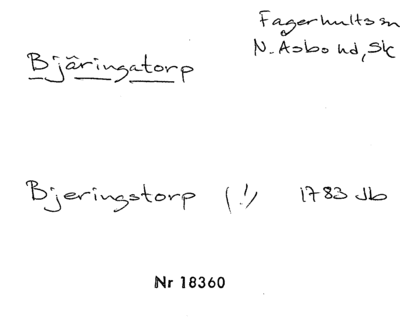 Fagerhults sn
N. Åsbo hd, Sk
Bjäringatorp
Bjeringstorp (!) 1783 Jb
Nr 18360